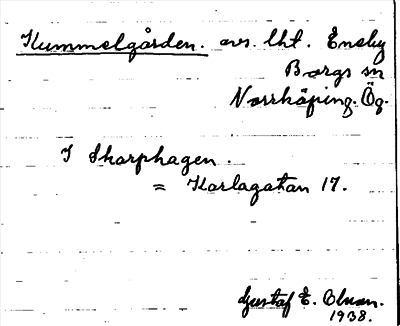 Kummelgården. avs. lht. Eneby
Borgs sn
Norrköping. Ög.
I Skarphagen.
= Karlagatan 17.
Gustaf E. Olson.
1938.